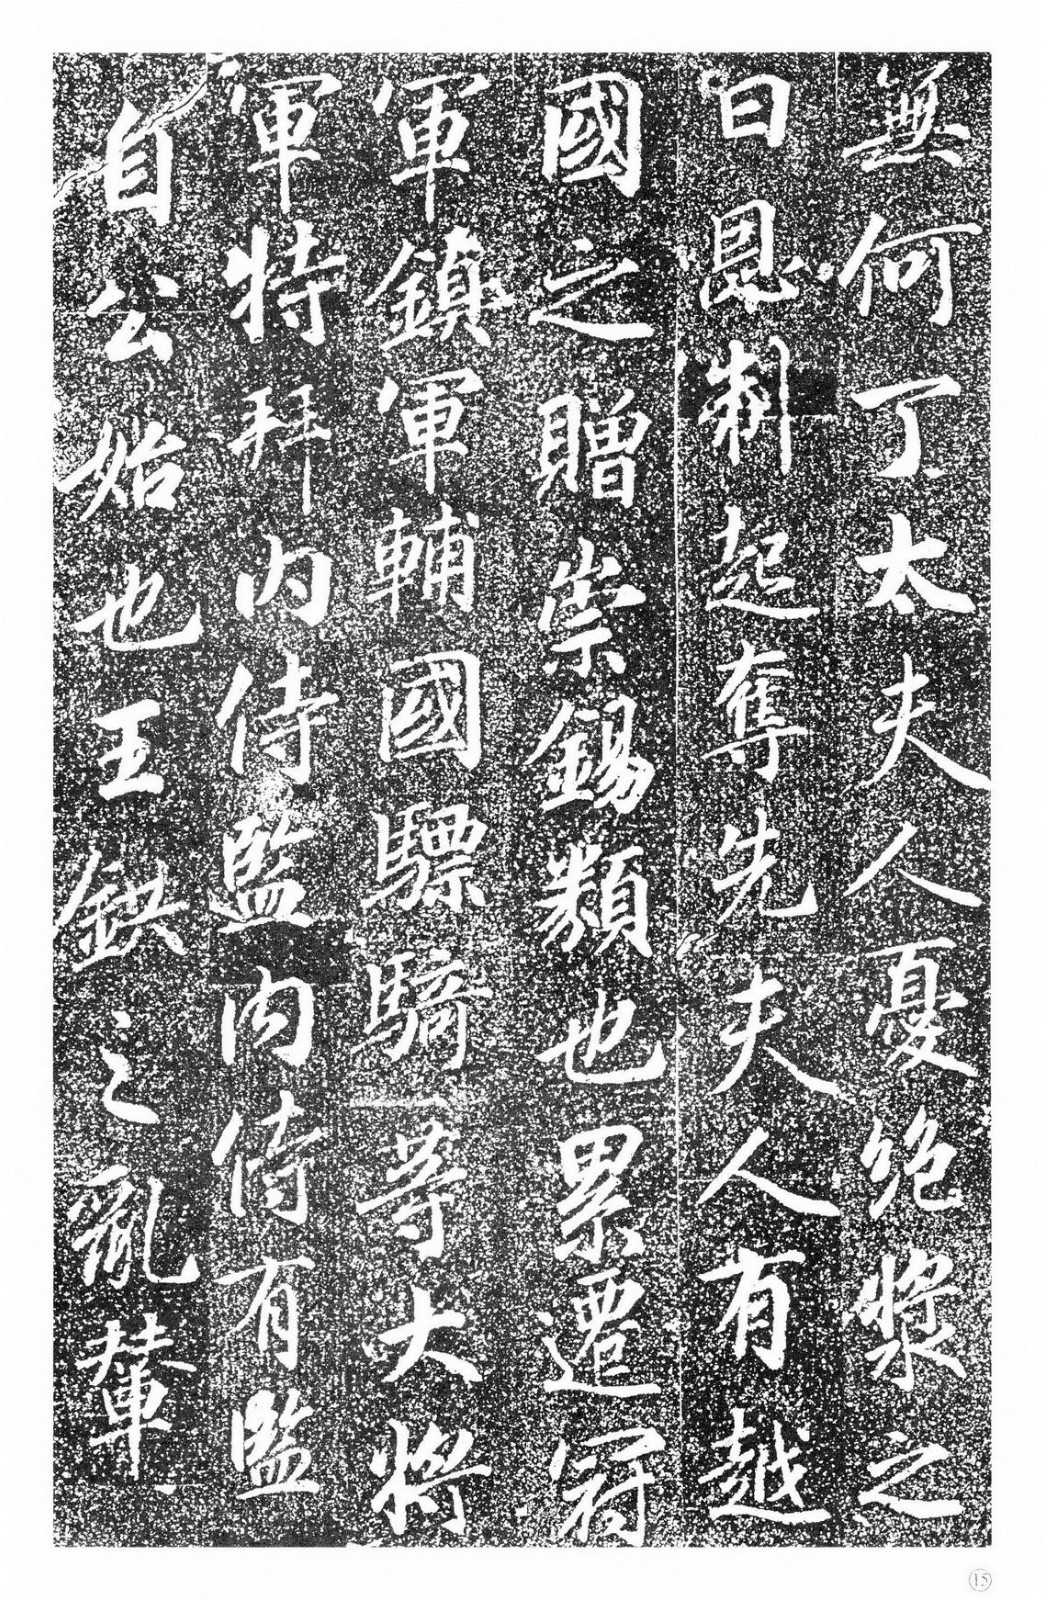 無何丁太夫人憂絶漿之
日恩制起奪先夫人有越
國之贈崇錫類也累遷冠
軍鎮軍輔國驃騎等大將
軍特拜內侍監內侍有監
自公始也王鉷之亂輦
15